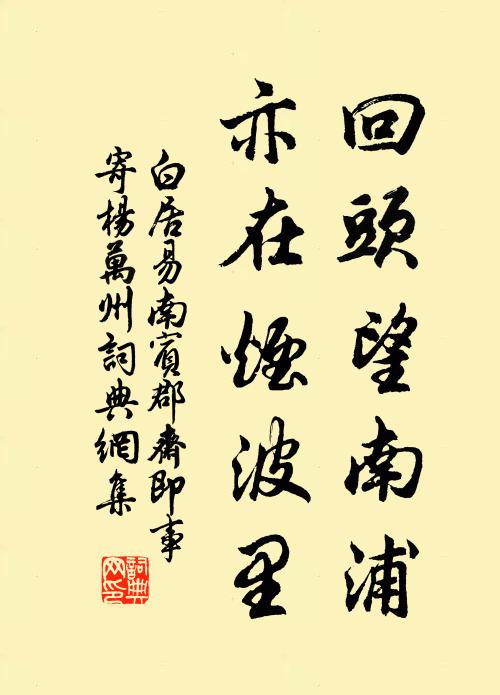 回頭望南浦
亦在煙波里
白居易南賓郡齋即事
寄楊萬州詞典網集
詞典
网印